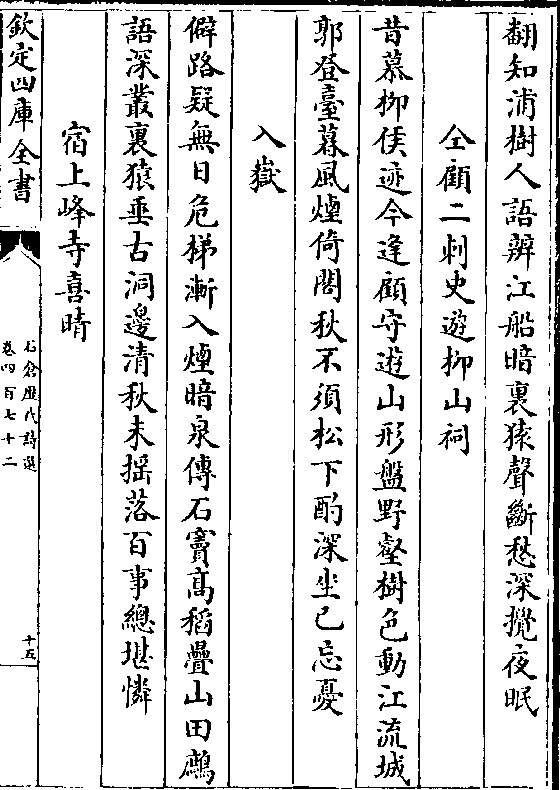 翻知浦樹人語辨江船暗裏猿聲斷愁深攪夜眠
仝顧二刺史遊柳山祠
昔慕柳侯迹今逢顧守遊山形盤野壑樹色動江流城
郭登臺暮風煙倚閣秋不須松下酌深坐已忘憂
入嶽
僻路疑無日危梯漸入煙暗泉傳石竇高稻疊山田鷓
語深叢裏猿垂古洞邊清秋未揺落百事總堪憐
宿上峰寺喜晴
欽定四庫全書
石倉歷代詩選
卷四百七十二
十五